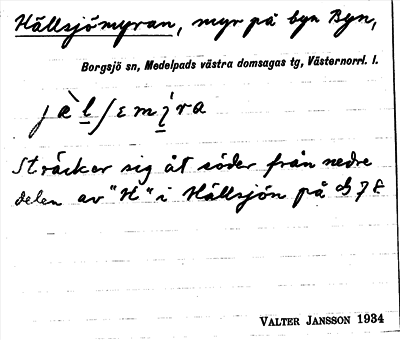 Hällsjömyran, myr på byn Byn,
Borgsjö sn, Medelpads västra domsagas tg, Västernorrl. l.
Sträcker sig åt söder från nedre
delen av "H" i Hällsjön på
VALTER JANSSON 1934